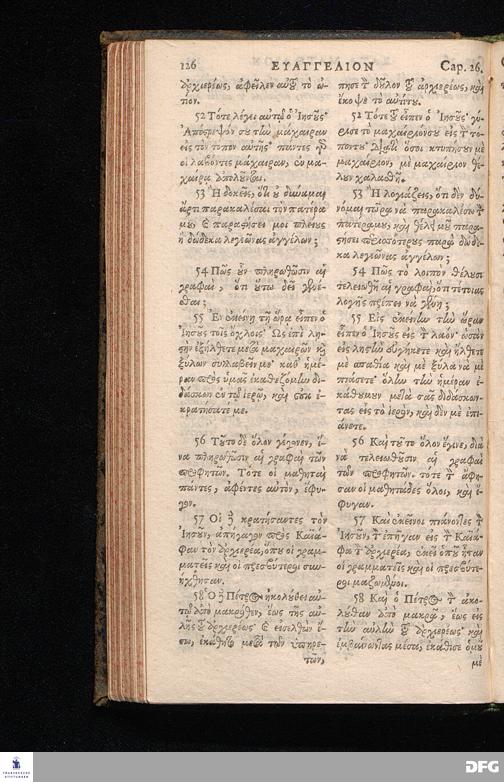 126 ΕΥΑΓΓΕΛΙΟΝ Cap. 26.
ἀρχιερέως, ἀφεῖλεν αὐτοῦ τὸ ὠ-
τίον.
52 Τότε λέγει αὐτῷ ὁ Ἰησοῦς·
Ἀπόστρεψόν σου τὴν μάχαιραν
εἰς τὸν τόπον αὐτῆς· πάντες γδ
οἱ λαβόντες μάχαιραν, ἐν μα-
χαίρᾳ ἀπολοῦνται.
53 Ἢ δοκεῖς, ὅτι οὐ δύναμαι
ἄρτι παρακαλέσαι τὸν πατέρα
μου, καὶ παραστήσει μοι πλείους
ἢ δώδεκα λεγεῶνας ἀγγέλων;
54 Πῶς οὖν πληρωθῶσιν αἱ
γραφαὶ, ὅτι οὕτω δεῖ γενέ-
σθαι;
55 Ἐν ἐκείνῃ τῇ ὥρᾳ εἶπεν ὁ
Ἰησοῦς τοῖς ὄχλοις· Ὡς ἐπὶ λῃ-
στὴν ἐξήλθετε μετὰ μαχαιρῶν καὶ
ξύλων συλλαβεῖν με· καθ' ἡμέ-
ραν πρὸς ὑμᾶς ἐκαθεζόμην δι-
δάσκων ἐν τῷ ἱερῷ, καὶ οὐκ ἐ-
κρατήσατέ με.
56 Τοῦτο δὲ ὅλον γέγονεν, ἵ-
να πληρωθῶσιν αἱ γραφαὶ τῶν
προφητῶν. Τότε οἱ μαθηταὶ
πάντες, ἀφέντες αὐτὸν, ἔφυ-
γον.
57 Οἱ δὲ κρατήσαντες τὸν
Ἰησοῦν, ἀπήγαγον πρὸς Καϊά-
φαν τὸν ἀρχιερέα, ὅπου οἱ γραμ-
ματεῖς καὶ οἱ πρεσβύτεροι συν-
ήχθησαν.
58 Ὁ δὲ Πέτρος ἠκολούθει αὐ-
τῷ ἀπὸ μακρόθεν, ἕως τῆς αὐ-
λῆς τοῦ ἀρχιερέως· καὶ εἰσελθὼν ἔ-
σω, ἐκάθητο μετὰ τῶν ὑπηρε-
τῶν,
πησε τὸν δοῦλον τοῦ ἀρχιερέως, καὶ
ἔκοψε τὸ αὐτίτου.
52 Τότε τοῦ εἶπεν ὁ Ἰησοῦς· γύ-
ρισε τὸ μαχαίριόνσου εἰς τὸν τό-
ποντου· διατὶ ὅσοι κτυπήσουν μὲ
μαχαίριον, μὲ μαχαίριον θέ-
λουν χαλασθῆ.
53 Ἢ λογιάζεις, ὅτι δὲν δύ-
νομαι τώρα νὰ παρακαλέσω τὸν
πατέραμου, καὶ θέλει μοῦ παρα-
στήσει περισσοτέρους παρὰ δώδε-
κα λεγεῶνας ἀγγέλων;
54 Πῶς τὸ λοιπὸν θέλουσι
τελειωθῆ αἱ γραφαὶ, ὅτι τέτοιας
λογῆς πρέπει νὰ γένῃ;
55 Εἰς ἐκείνην τὴν ὥραν
εἶπεν ὁ Ἰησοῦς εἰς τὸν λαόν· ὡσὰν
εἰς λῃστὴν εὐγήκετε καὶ ἤλθετε
μὲ σπαθία καὶ μὲ ξύλα νὰ μὲ
πιάσετε· ὅλην τὴν ἡμέραν ἐ-
κάθουμουν μετὰ σᾶς διδάσκων-
τας εἰς τὸ ἱερὸν, καὶ δὲν μὲ ἐπι-
άνετε.
56 Καὶ τοῦτο ὅλον ἔγινε, διὰ
νὰ τελειωθοῦσιν αἱ γραφαὶ
τῶν προφητῶν. τότε τὸν ἄφη-
σαν οἱ μαθητάδες ὅλοι, καὶ ἔ-
φυγαν.
57 Καὶ ἐκεῖνοι πιάνοντες τὸν
Ἰησοῦν, τὸν ἐπῆγαν εἰς τὸν Καϊά-
φα τὸν ἀρχιερέα, ἐκεῖ ὁποῦ ἦταν
οἱ γραμματεῖς καὶ οἱ πρεσβύτε-
ροι μαζωμένοι.
58 Καὶ ὁ Πέτρος τὸν ἀκο-
λούθαν ἀπὸ μακρὰ, ἕως εἰς
τὴν αὐλὴν τοῦ ἀρχιερέως· καὶ
ἐμβαίνωντας μέσα, ἐκάθισε ὁμοῦ
μὲ
FRANCKESCHE STIFTUNGEN
DFG